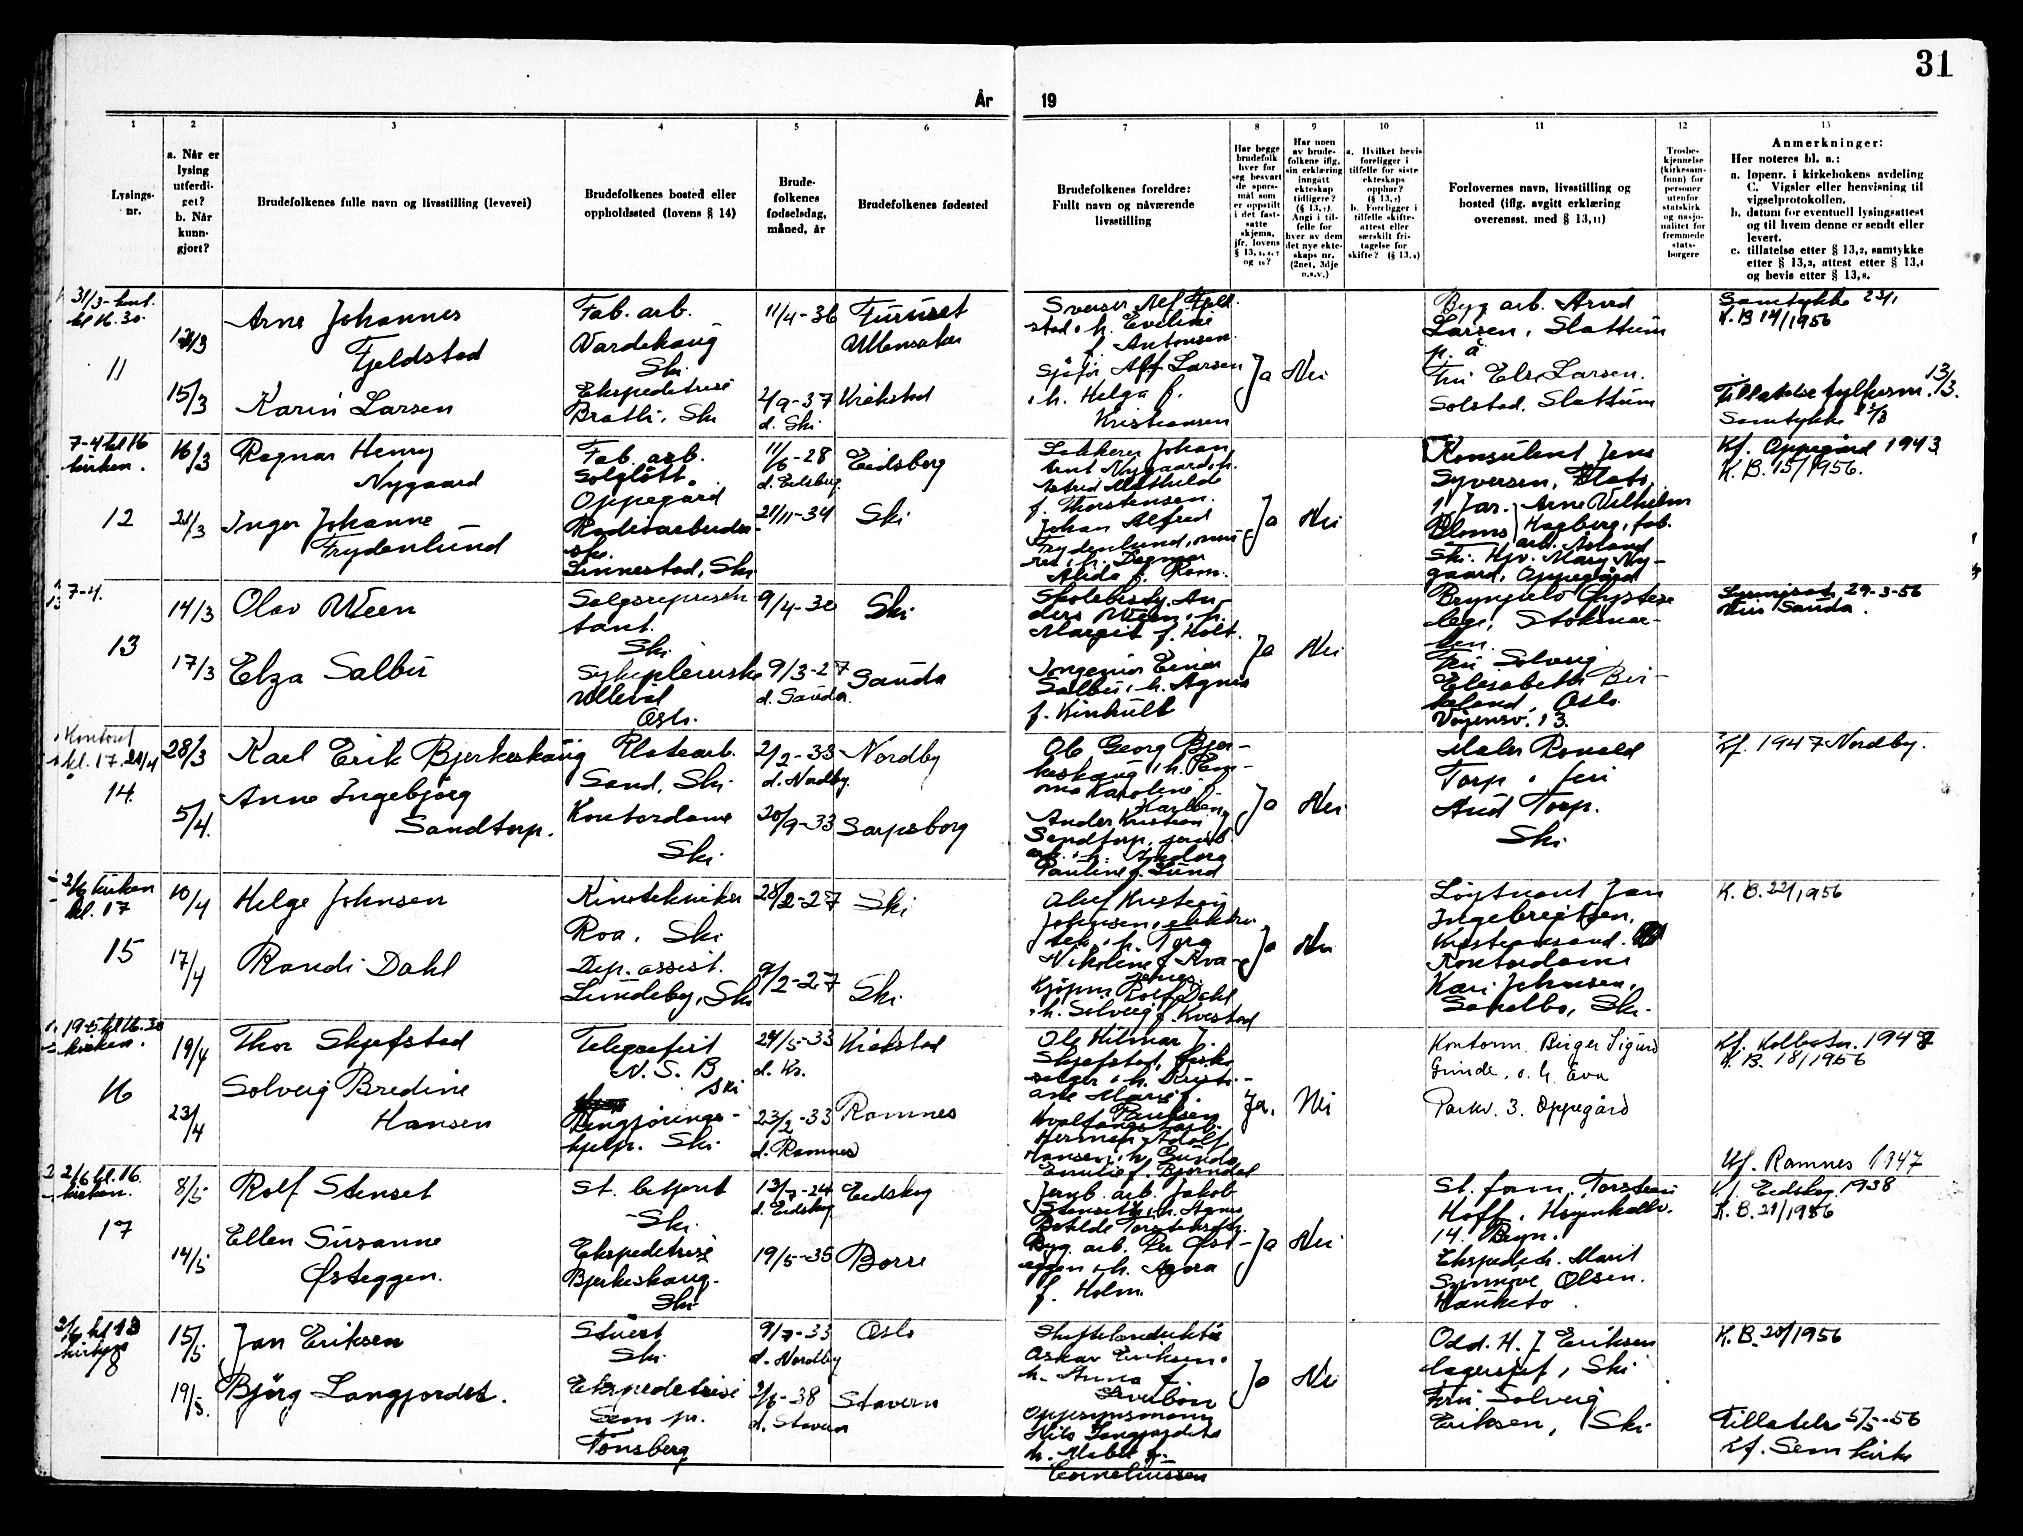 31
År 19
1 2 3 4 5 6 7 8 9 10 11 12 13
Lysings-
nr.
a. Når er
lysing
utferdi-
get?
b. Når
kunn-
gjort?
Brudefolkenes fulle navn og livsstilling (levevei)
Brudefolkenes bosted eller
oppholdssted (lovens § 14)
Brude-
folkenes
fødselsdag,
måned, år
Brudefolkenes fødested
Brudefolkenes foreldre:
Fullt navn og nåværende
livsstilling
Har begge
brudefolk
hver for
seg besvart
de spørs-
mål som
er oppstilt
i det fast-
satte
skjema,
jfr. lovens
Har noen
av brude-
folkene iflg.
sin erklæring
inngått
ekteskap
tidligere?
Angi i til-
felle for
hver av dem
det nye ekte-
skaps nr.
(2net, 3dje
o.s.v.)
a. Hvilket bevis
foreligger i
tilfelle for siste
ekteskaps
opphør?
b. Foreligger i
tilfelle skifte-
attest eller
særskilt fri-
tagelse for
skifte?
Forlovernes navn, livsstilling og
bosted (iflg. avgitt erklæring
overensst. med § 13,11)
Trosbe-
kjennelse
(kirkesam-
funn) for
personer
utenfor
statskirk
og nasjo-
nalitet for
fremmede
stats-
borgere
Anmerkninger:
Her noteres bl. a.:
a. løpenr. i kirkebokens avdeling
C. Vigsler eller henvisning til
vigselprotokollen.
b. datum for eventuell lysingsattest
og til hvem denne er sendt eller
levert.
c. tillatelse etter § 13,2, samtykke
etter § 13,3, attest etter § 13,4
og bevis etter § 13,8.
31/3 - kont.
kl 16.30
11
15/3
Arne Johannes
Fjeldstad
Karin Larsen
Fab. arb.
Vardehaug
Ski
Ekspeditrise
Bratli, Ski
11/4-36
2/9-37
d. Ski
Furuset
Ullensaker
Kråkstad
Sverser Alf Fjeld-
stad, h. Eveline
f. Antonsen.
Sjåfør Alf Larsen
h. Helga f.
Kristiansen
Ja Nei
Byg arb. Arvid
Larsen, Slattum
p. å
Fru Else Larsen.
Solstad. Slattum
Samtykke 23/1
K.B 14/1956
Tillatelse fylkesm. 13/3.
Samtykke
7-4 kl 16
kirken.
12
16/3
21/3
Ragnar Henry
Nygaard
Inger Johanne
Frydenlund
Fab. arb.
Solgløtt.
Oppegård
Radioarbeider-
ske.
Linnestad, Ski
11/6-28
d. Eidsberg
21/11-34
Eidsberg
Ski
Lakkerer Johan
Nygaard, h.
Mathilde
f. Thorstensen.
Johan Alfred
Frydenlund, mu-
rer, h. Dagmar
Alida f. Ram.
Ja Nei
Konsulent Jens
Syversen,
Arne Vilhelm
Hagberg, fab.
arb. Åsland
Ski. Hjv. Mary Ny-
gaard, Oppegård
Kf. Oppegård 1943
K.B. 15/1956.
7-4.
13
14/3
17/3
Olav Ween
Elza Salbu
Salgsrepresen
tant.
Ski
Sykepleierske
Ullevål
Oslo.
9/4-30
9/3-27
d. Sauda
Ski
Sauda
Skolebesty. An-
ders Ween, h.
Margit f. Holt.
Ingeniør Einar
Salbu, h. Agnes
f. Kinhult
Ja Nei
Brynjulv Øystese
lege, Stokmar-
ken.
Fru Solveig
Elisabeth Bir-
keland, Oslo.
Vøyensv. 13.
29-3-56
til Sauda.
Kontoret
kl. 17. 21/4
14
28/3
5/4.
Karl Erik Bjerkeshaug
Anne Ingebjørg
Sandtorp.
Platearb.
Sand, Ski
Kontordame
Ski
2/2-33
d. Nordby.
20/9-33
Nordby
Sarpsborg
Ole Georg Bjer-
keshaug, h. Em-
ma Karoline f.
Karlsen
Anders Kristian
Sandtorp, jernb.
arb., h. Ingborg
Pauline f. Lund
Ja Nei
Maler Ronald
Torp, fru
Aud Torp.
Ski
Kf. 1947 Nordby.
2/6 kirken
kl. 17
15
10/4
17/4
Helge Johnsen
Randi Dahl
Kinotekniker
Roa, Ski
Dep. assist.
Lundeby, Ski
28/2-27
9/2-27
Ski
Ski
Olaf Kristian
Johnsen, elektro
tek., h. Tora
Nikoline f. Kva-
Kjøpm Rolf Dahl
h. Solveig f. Kvestad
Ja Nei
Løytnant Jan
Ingebreigtsen,
Kristiansand.
Kontordame
Kari Johnsen,
Sandbo, Ski.
K.B. 22/1956
19-5 kl 16.30
kirken.
16
19/4
23/4
Thor Skjefstad
Solveig Bredine
Hansen
Telegrafist
N.S.B
Ski
Rengjørings-
hjelp. Ski
24/5-33
d. Kr.
23/2-33
d. Ramnes
Kråkstad
Ramnes
Ole Hilmar J.
Skjefstad, fiske
selger, h. Kristi-
ane Marie f.
Paulsen
Hvalfangstarb.
Herman Adolf
Hansen, h. Gunda
Emilie f. Bjørndal
Ja. Nei
Kontorm. Birger Sigurd
Grinde, o. h. Eva
Parkv. 3. Oppegård
Kf. Kolbotn. 1948
K.B. 18/1956
Kf. Ramnes 1947
2/6 kl. 16.
kirken.
17
8/5
14/5
Rolf Stenset
Ellen Susanne
Østeggen.
St. betjent
Ski.
Ekspeditrise
Bjerkeshaug.
Ski
13/7-24
d. Eidskog
19/5-35
Eidskog
Borre
Jernb. arb. Jakob
Stenseth, h. Agnes
Botilde
Byg. arb. Per Øst-
eggen, h. Agora
f. Holm
Ja Nei
St. form. Torstein
Hoff, Høyenhallv.
14. Bryn.
Ekspeditr. Marit
Synnøve Olsen.
Hauketo.
Kf. Eidskog. 1938
K.B. 21/1956
kl 13
kirken
18
15/5
19/5.
Jan Eriksen
Bjørg Langjordet.
Stuert
Ski
Ekspeditrise
Sem pr.
Tønsberg
9/7-33
d. Nordby
2/6-38
d. Stavern
Oslo
Stavern
Skiftekonduktør
Oskar Eriksen,
h. Anna f.
Oppsynsmann
Nils Langjordet
h. Mabel f.
Corneliussen
Ja Nei
Odd. H. J Eriksen
lagersjef, Ski
Fru Solveig
Eriksen, Ski
K.B. 20/1956
Tillatelse 5/5-56
Kf. Sem kirke